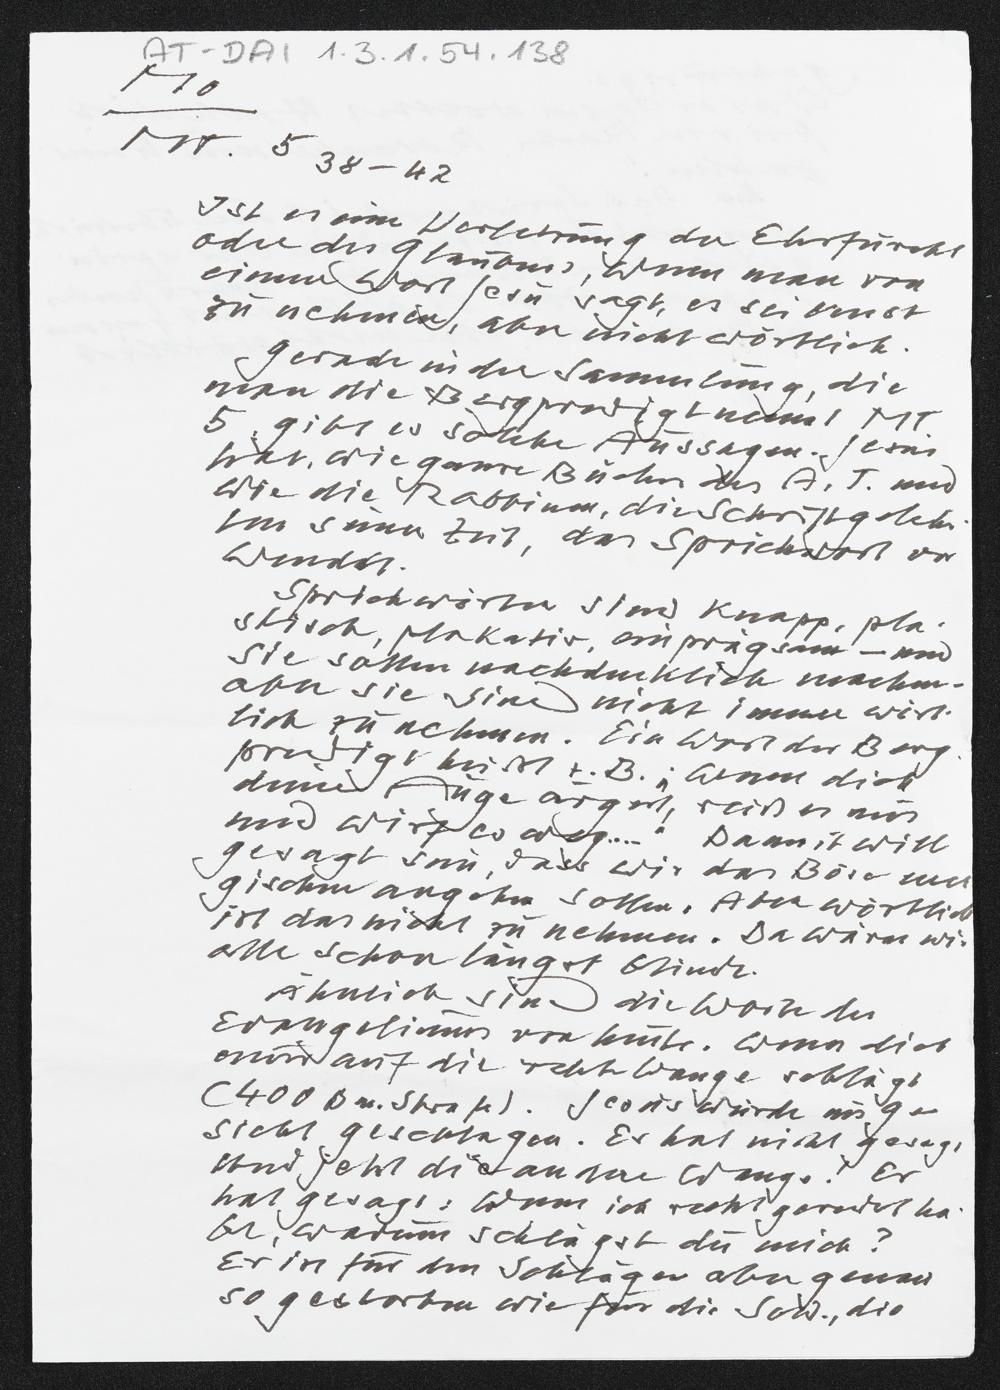 AT-DAI 1.3.1.54.138
Mo
Mt. 5 38-42
Ist es eine Verletzung der Ehrfurcht
oder des Glaubens, wenn man von
einem Wort Jesu sagt, es sei ernst
zu nehmen, aber nicht wörtlich.
Gerade in der Sammlung, die
man die Bergpredigt nennt Mt
5, gibt es solche Aussagen. Jesus
hat, wie ganze Bücher des A.T. und
wie die Rabbinen, die Schriftgelehr-
ten seiner Zeit, das Sprichwort ver
wendet.
Sprichwörter sind knapp, pla-
stisch, plakativ, einprägsam – und
sie sollen nachdenklich machen -
aber sie sind nicht immer wört-
lich zu nehmen. Ein Wort der Berg-
predigt heisst z.B.: "Wenn dich
dein Auge ärgert, reiß es aus
und wirf es weg..." Damit will
gesagt sein, dass wir das Böse ener
gischer angehen sollen. Aber wörtlich
ist das nicht zu nehmen. Da wären wir
alle schon längst blind.
Ähnlich sind die Worte des
Evangeliums von heute. Wenn dich
einer auf die rechte Wange schlägt
(400 Den. Strafe). Jesus wurde ins Ge
sicht geschlagen. Er hat nicht gesagt
und jetzt die andere Wange! Er
hat gesagt: Wenn ich recht geredet ha-
be, warum schlägst du mich?
Er ist für den Schläger aber genau
so gestorben wie für die Sold., die